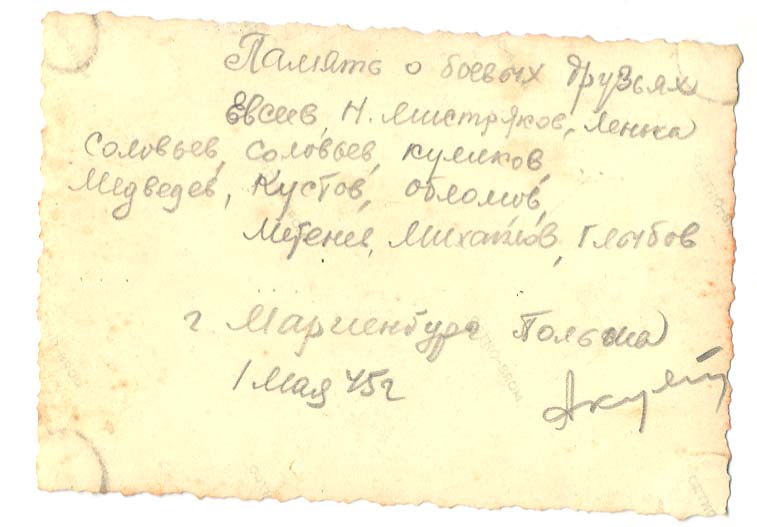 Память о боевых друзьях
Евсеев, Н. Мистряков, Ленька
Соловьев, Соловьев, Куликов,
Медведев, Кустов, Обломов,
Михайлов, Глыбов
г Мариенбург Польша
1 Мая 45г